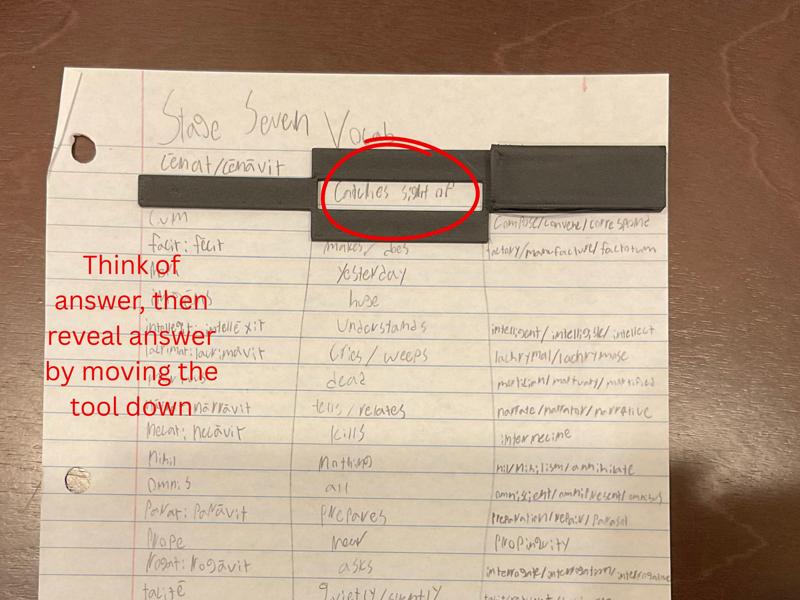 Stage Seven Vocab
cēnat/cēnāvit
Catches sight of
cum compose/convene/correspond
facit: fēcit makes/does factory/manufacture/factotum
yesterday
huge
intellegit: intellēxit Understands intelligent/intelligible/intellect
lacrimat: lacrimāvit Cries/weeps lachrymal/lachrymose
dead
nārrāvit tells/relates narrate/narrator/narrative
necat: necāvit kills internecine
nihil nothing nil/nihilism/annihilate
omnis all
parat: parāvit prepares preparation/repair/parasol
prope near propinquity
rogat: rogāvit asks interrogate/interrogation/interrogative
tacitē quietly/silently
Think of
answer, then
reveal answer
by moving the
tool down